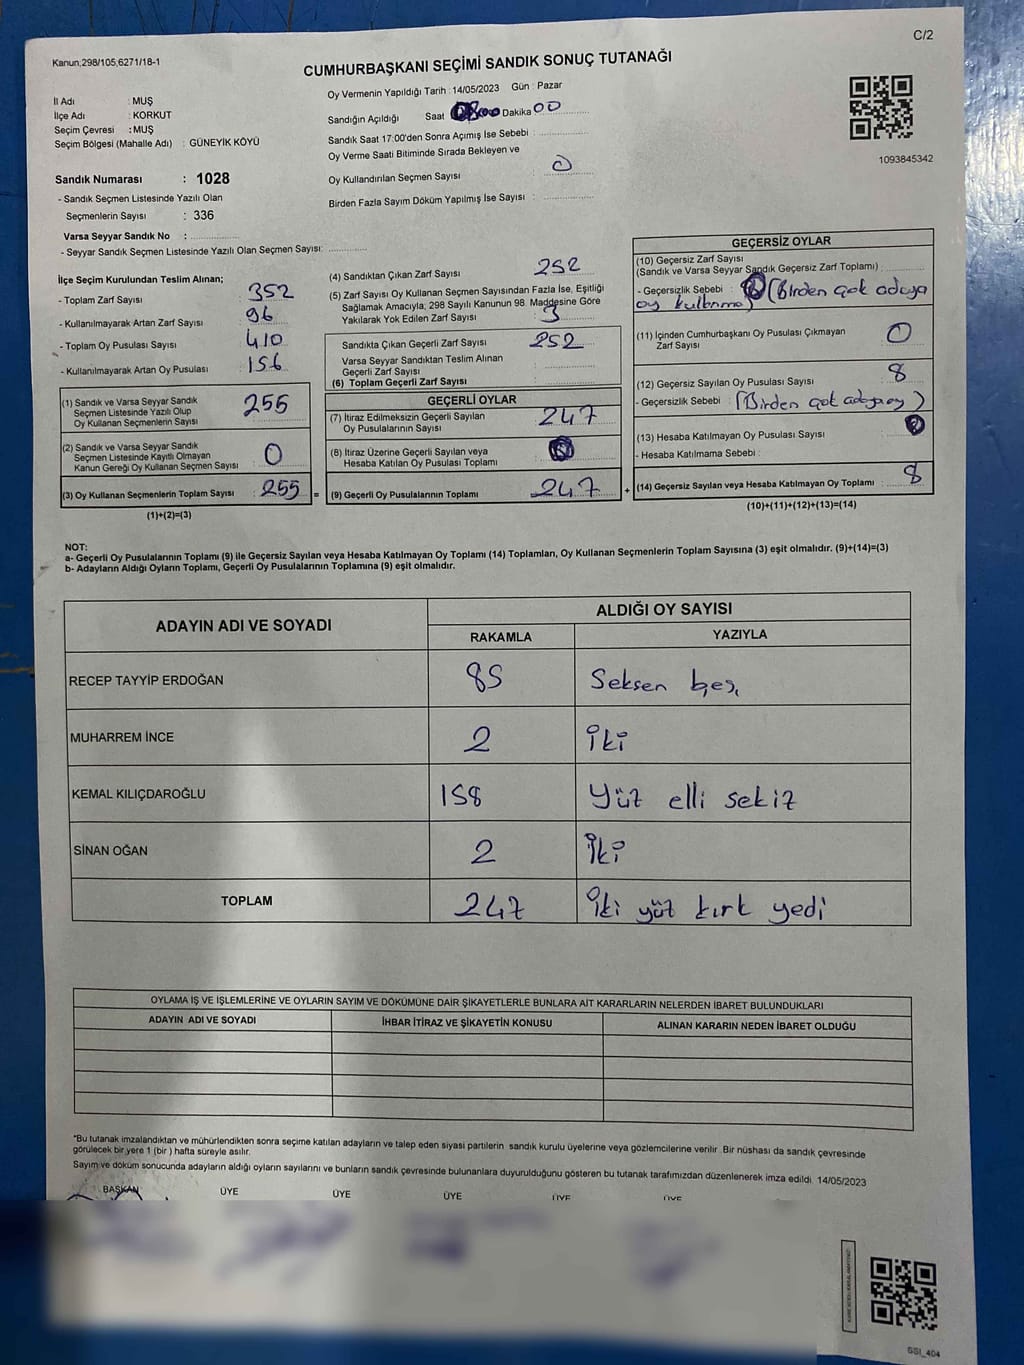 C/2
Kanun;298/105;6271/18-1
CUMHURBAŞKANI SEÇİMİ SANDIK SONUÇ TUTANAĞI
İl Adı : MUŞ
İlçe Adı : KORKUT
Seçim Çevresi : MUŞ
Seçim Bölgesi (Mahalle Adı) : GÜNEYİK KÖYÜ
Sandık Numarası : 1028
- Sandık Seçmen Listesinde Yazılı Olan
Seçmenlerin Sayısı : 336
Varsa Seyyar Sandık No :
- Seyyar Sandık Seçmen Listesinde Yazılı Olan Seçmen Sayısı:
Oy Vermenin Yapıldığı Tarih : 14/05/2023 Gün : Pazar
Sandığın Açıldığı Saat Dakika 00
Sandık Saat 17:00'den Sonra Açımış İse Sebebi :
Oy Verme Saati Bitiminde Sırada Bekleyen ve
Oy Kullandırılan Seçmen Sayısı : 0
Birden Fazla Sayım Döküm Yapılmış İse Sayısı :
1093845342
İlçe Seçim Kurulundan Teslim Alınan;
- Toplam Zarf Sayısı : 352
- Kullanılmayarak Artan Zarf Sayısı : 96
- Toplam Oy Pusulası Sayısı : 410
- Kullanılmayarak Artan Oy Pusulası : 156
(1) Sandık ve Varsa Seyyar Sandık
Seçmen Listesinde Yazılı Olup
Oy Kullanan Seçmenlerin Sayısı : 255
(2) Sandık ve Varsa Seyyar Sandık
Seçmen Listesinde Kayıtlı Olmayan
Kanun Gereği Oy Kullanan Seçmen Sayısı : 0
(3) Oy Kullanan Seçmenlerin Toplam Sayısı : 255 =
(1)+(2)=(3)
(4) Sandıktan Çıkan Zarf Sayısı : 252
(5) Zarf Sayısı Oy Kullanan Seçmen Sayısından Fazla İse, Eşitliği
Sağlamak Amacıyla, 298 Sayılı Kanunun 98. Maddesine Göre
Yakılarak Yok Edilen Zarf Sayısı : 3
Sandıkta Çıkan Geçerli Zarf Sayısı : 252
Varsa Seyyar Sandıktan Teslim Alınan
Geçerli Zarf Sayısı :
(6) Toplam Geçerli Zarf Sayısı :
GEÇERLİ OYLAR
(7) İtiraz Edilmeksizin Geçerli Sayılan
Oy Pusulalarının Sayısı : 247
(8) İtiraz Üzerine Geçerli Sayılan veya
Hesaba Katılan Oy Pusulası Toplamı :
(9) Geçerli Oy Pusulalarının Toplamı : 247 +
GEÇERSİZ OYLAR
(10) Geçersiz Zarf Sayısı
(Sandık ve Varsa Seyyar Sandık Geçersiz Zarf Toplamı) :
- Geçersizlik Sebebi : (Birden çok adaya
oy kullanma)
(11) İçinden Cumhurbaşkanı Oy Pusulası Çıkmayan
Zarf Sayısı : 0
(12) Geçersiz Sayılan Oy Pusulası Sayısı : 8
- Geçersizlik Sebebi : (Birden çok adaya oy)
(13) Hesaba Katılmayan Oy Pusulası Sayısı :
- Hesaba Katılmama Sebebi :
(14) Geçersiz Sayılan veya Hesaba Katılmayan Oy Toplamı : 8
(10)+(11)+(12)+(13)=(14)
NOT:
a- Geçerli Oy Pusulalarının Toplamı (9) ile Geçersiz Sayılan veya Hesaba Katılmayan Oy Toplamı (14) Toplamları, Oy Kullanan Seçmenlerin Toplam Sayısına (3) eşit olmalıdır. (9)+(14)=(3)
b- Adayların Aldığı Oyların Toplamı, Geçerli Oy Pusulalarının Toplamına (9) eşit olmalıdır.
ADAYIN ADI VE SOYADI
ALDIĞI OY SAYISI
RAKAMLA YAZIYLA
RECEP TAYYİP ERDOĞAN 85 Seksen beş
MUHARREM İNCE 2 iki
KEMAL KILIÇDAROĞLU 158 Yüz elli sekiz
SİNAN OĞAN 2 iki
TOPLAM 247 iki yüz kırk yedi
OYLAMA İŞ VE İŞLEMLERİNE VE OYLARIN SAYIM VE DÖKÜMÜNE DAİR ŞİKAYETLERLE BUNLARA AİT KARARLARIN NELERDEN İBARET BULUNDUKLARI
ADAYIN ADI VE SOYADI İHBAR İTİRAZ VE ŞİKAYETİN KONUSU ALINAN KARARIN NEDEN İBARET OLDUĞU
*Bu tutanak imzalandıktan ve mühürlendikten sonra seçime katılan adayların ve talep eden siyasi partilerin sandık kurulu üyelerine veya gözlemcilerine verilir. Bir nüshası da sandık çevresinde
görülecek bir yere 1 (bir) hafta süreyle asılır.
Sayım ve döküm sonucunda adayların aldığı oyların sayılarını ve bunların sandık çevresinde bulunanlara duyurulduğunu gösteren bu tutanak tarafımızdan düzenlenerek imza edildi. 14/05/2023
BAŞKAN ÜYE ÜYE ÜYE ÜYE ÜYE
SSI_404